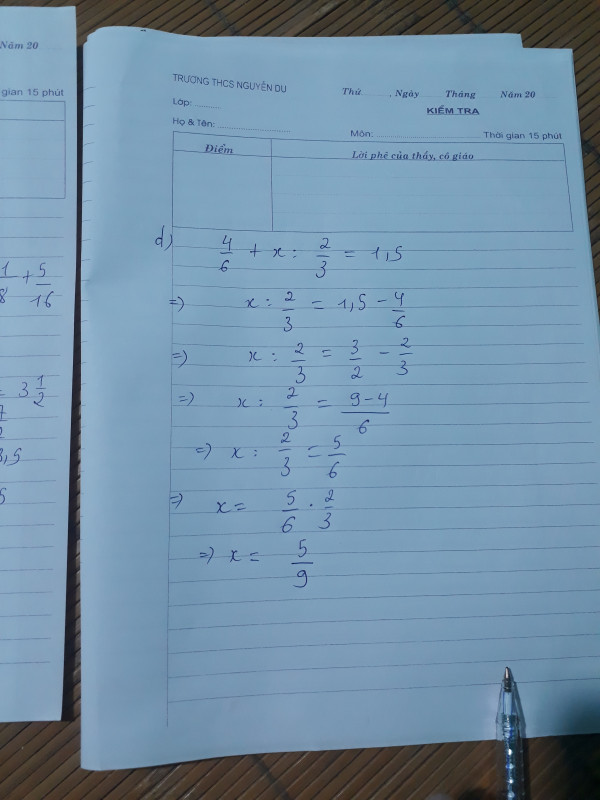 Năm 20
gian 15 phút
1/8 + 5/16
= 3 1/2
7/2
3,5
5
TRƯỜNG THCS NGUYỄN DU
Thứ ........, Ngày ........ Tháng ........ Năm 20
Lớp: ........
KIỂM TRA
Họ & Tên: ........................
Môn: ........................ Thời gian 15 phút
Điểm
Lời phê của thầy, cô giáo
d) 4/6 + x : 2/3 = 1,5
=) x : 2/3 = 1,5 - 4/6
=) x : 2/3 = 3/2 - 2/3
=) x : 2/3 = (9-4)/6
=) x : 2/3 = 5/6
=) x = 5/6 . 2/3
=) x = 5/9